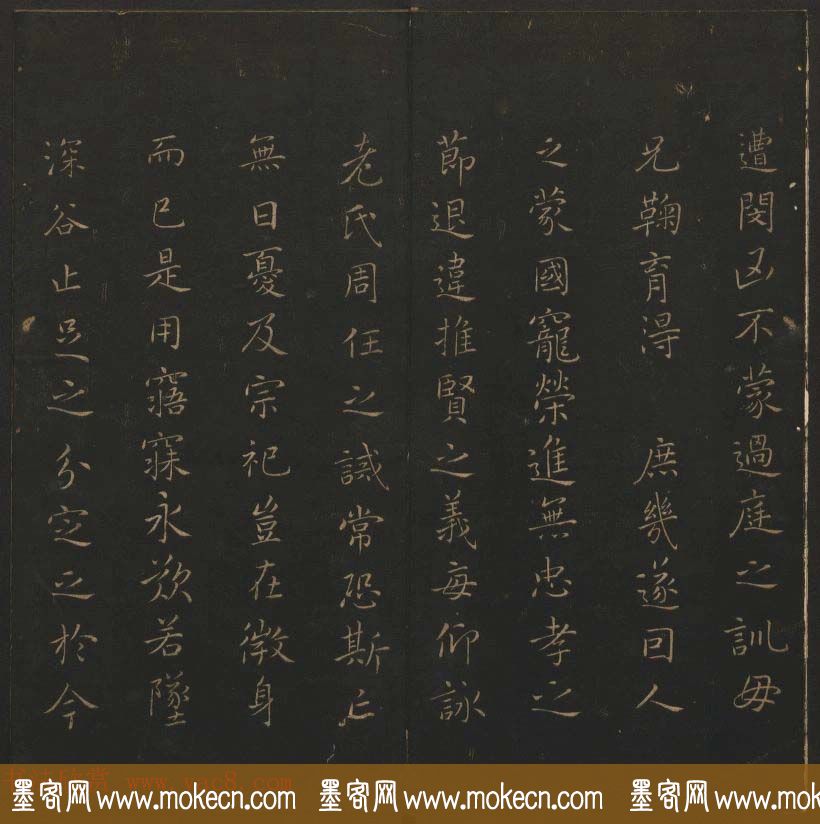 遭閔凶不蒙過庭之訓母
兄鞠育得 庶幾遂因人
之蒙國寵榮進無忠孝之
節退違推賢之義每仰詠
老氏周任之誡常恐斯亡
無日憂及宗祀豈在微身
而已是用寤寐永歎若墜
深谷止足之分定之於今
墨客网 www.mokecn.com 墨客网 www.mokecn.com 墨客网 www.mokecn.com